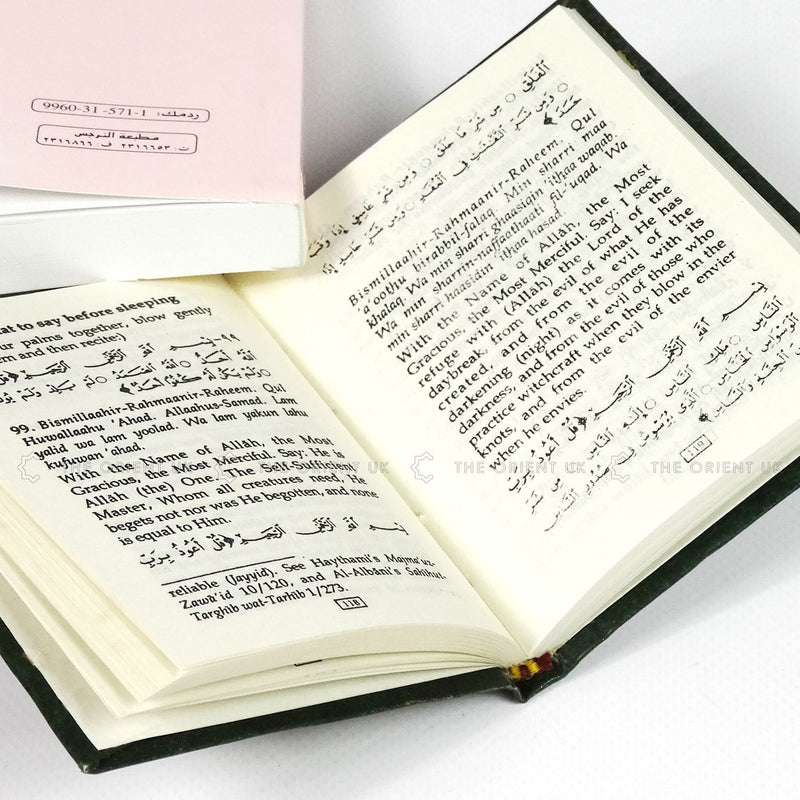 ردمك: 1-571-31-9960
مطبعة النرجس
ت: ٢٣١٦٦٥٣ ف: ٢٣١٦٨٦٦
at to say before sleeping
ur palms together, blow gently
em and then recite)
٩٩- بسم الله الرحمن الرحيم
99. Bismillaahir-Rahmaanir-Raheem. Qul
Huwallaahu 'Ahad. Allaahus-Samad. Lam
yalid wa lam yoolad. Wa lam yakun lahu
kufuwan 'ahad.
With the Name of Allâh, the Most
Gracious, the Most Merciful. Say: He is
Allâh (the) One. The Self-Sufficient
Master, Whom all creatures need, He
begets not nor was He begotten, and none
is equal to Him.
بِسْمِ اللَّهِ الرَّحْمَنِ الرَّحِيمِ ﴿قُلْ أَعُوذُ بِرَبِّ
reliable (Jayyid). See Haythami's Majma'uz-
Zawa'id 10/120, and Al-Albâni's Sahihut-
Targhib wat-Tarhib 1/273.
118
الْفَلَقِ
مِن شَرِّ مَا خَلَقَ وَمِن شَرِّ غَاسِقٍ إِذَا وَقَبَ
وَمِن شَرِّ النَّفَّاثَاتِ فِي الْعُقَدِ وَمِن شَرِّ حَاسِدٍ إِذَا
حَسَدَ﴾
Bismillaahir-Rahmaanir-Raheem. Qul
'a'oothu birabbil-falaq. Min sharri maa
khalaq. Wa min sharri ghaasiqin 'ithaa waqab.
Wa min sharrin-naffaathaati fil-'uqad. Wa
min sharri haasidin 'ithaa hasad.
With the Name of Allâh, the Most
Gracious, the Most Merciful. Say: I seek
refuge with (Allâh) the Lord of the
daybreak, from the evil of what He has
created, and from the evil of the
darkening (night) as it comes with its
darkness, and from the evil of those who
practice witchcraft when they blow in the
knots, and from the evil of the envier
when he envies.
بِسْمِ اللَّهِ الرَّحْمَنِ الرَّحِيمِ ﴿قُلْ أَعُوذُ بِرَبِّ
النَّاسِ مَلِكِ النَّاسِ إِلَهِ النَّاسِ مِن شَرِّ
الْوَسْوَاسِ الَّذِي يُوَسْوِسُ فِي صُدُورِ النَّاسِ
الْجِنَّةِ وَالنَّاسِ﴾
119
THE ORIENT UK THE ORIENT UK THE ORIENT UK